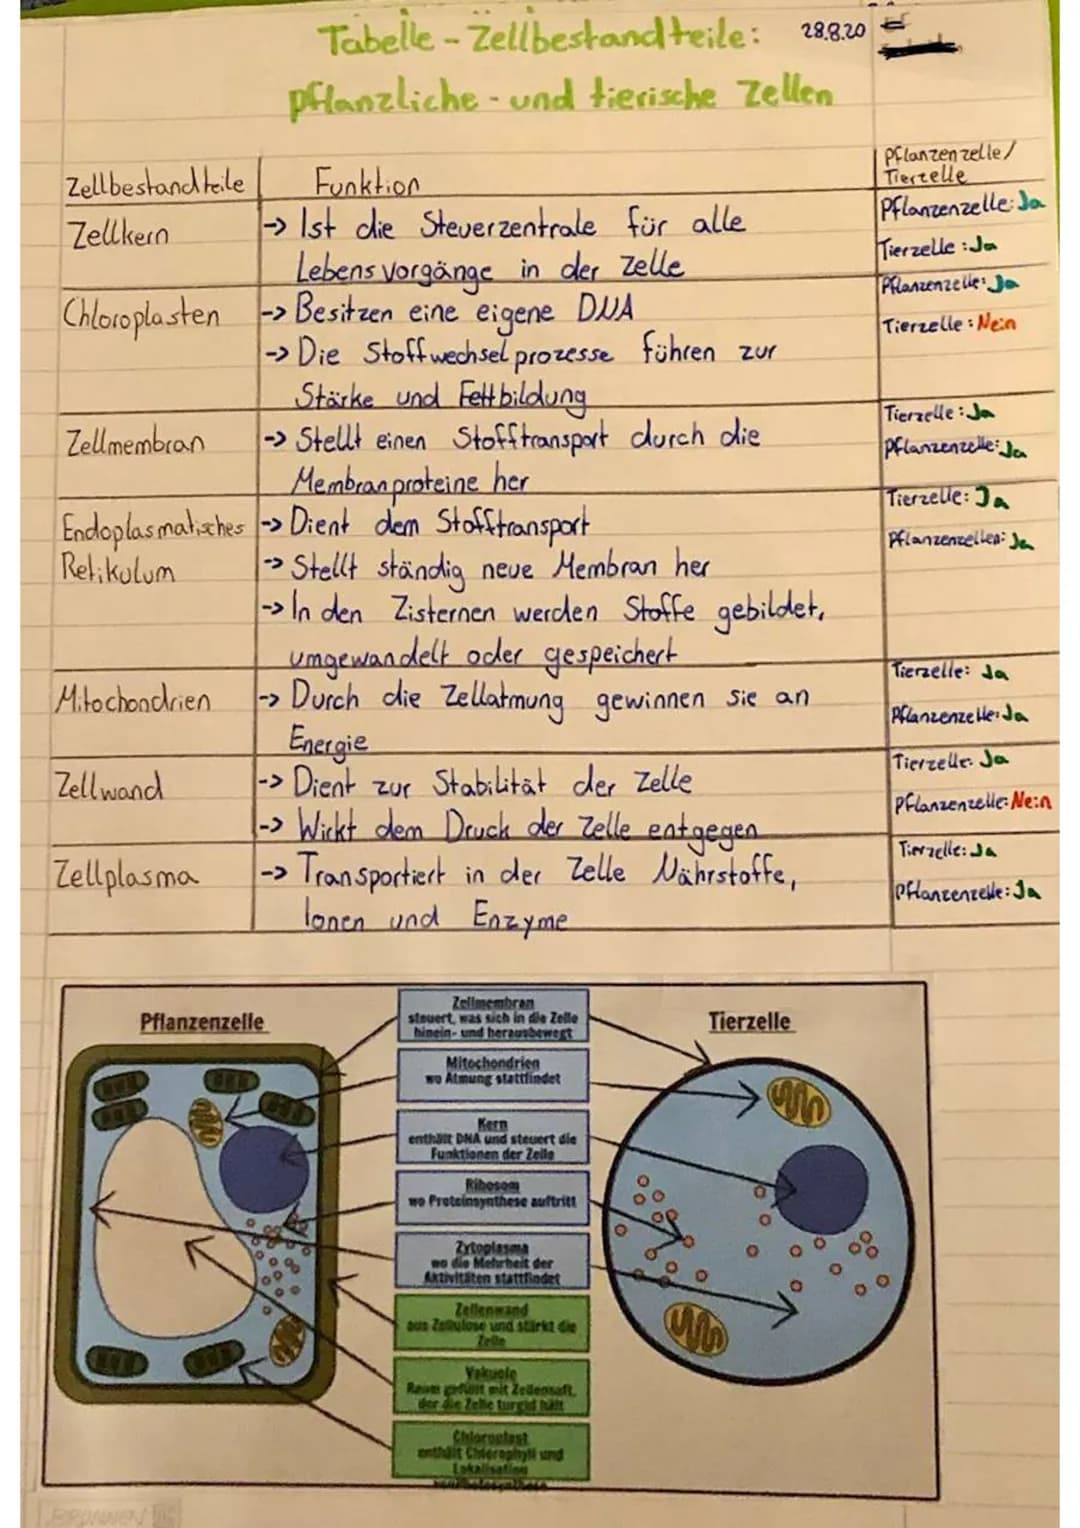 Tabelle - Zellbestandteile:
28.8.20
pflanzliche - und tierische Zellen
Zellbestandteile
Funktion
Pflanzenzelle/
Tierzelle
Zellkern
-> Ist die Steuerzentrale für alle
Lebensvorgänge in der Zelle
Pflanzenzelle: Ja
Tierzelle: Ja
Chloroplasten
-> Besitzen eine eigene DNA
-> Die Stoffwechselprozesse führen zur
Stärke und Fettbildung
Pflanzenzelle: Ja
Tierzelle: Nein
Zellmembran
-> Stellt einen Stofftransport durch die
Membranproteine her
Tierzelle: Ja
Pflanzenzelle: Ja
Endoplasmatisches
Retikulum
-> Dient dem Stofftransport
-> Stellt ständig neue Membran her
-> In den Zisternen werden Stoffe gebildet,
umgewandelt oder gespeichert
Tierzelle: Ja
Pflanzenzellen: Ja
Mitochondrien
-> Durch die Zellatmung gewinnen sie an
Energie
Tierzelle: Ja
Pflanzenzelle: Ja
Zellwand
-> Dient zur Stabilität der Zelle
-> Wirkt dem Druck der Zelle entgegen
Tierzelle: Ja
Pflanzenzelle: Nein
Zellplasma
-> Transportiert in der Zelle Nährstoffe,
Ionen und Enzyme
Tierzelle: Ja
Pflanzenzelle: Ja
Pflanzenzelle
Tierzelle
Zellmembran
steuert, was sich in die Zelle
hinein- und herausbewegt
Mitochondrien
wo Atmung stattfindet
Kern
enthält DNA und steuert die
Funktionen der Zelle
Ribosom
wo Proteinsynthese auftritt
Zytoplasma
wo die Mehrheit der
Aktivitäten stattfindet
Zellenwand
aus Zellulose und stärkt die
Zelle
Vakuole
Raum gefüllt mit Zellensaft,
der die Zelle turgid hält
Chloroplast
enthält Chlorophyll und
Lokalisation
von Photosynthese
BRUNNEN